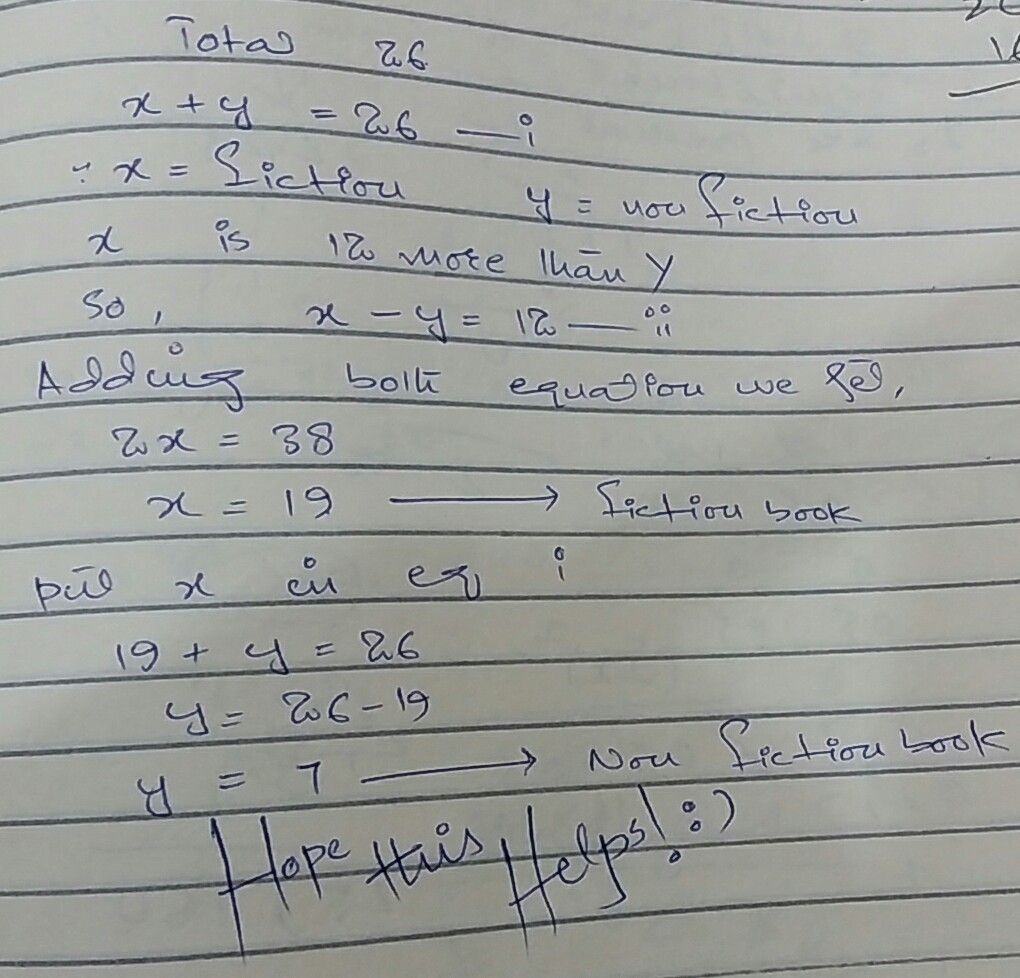 Total 26
x + y = 26 — i
∵ x = fiction y = non fiction
x is 12 more than y
So, x - y = 12 — ii
Adding both equation we get,
2x = 38
x = 19 ⟶ fiction book
put x in eq i
19 + y = 26
y = 26 - 19
y = 7 ⟶ Non fiction book
Hope this Helps! :)